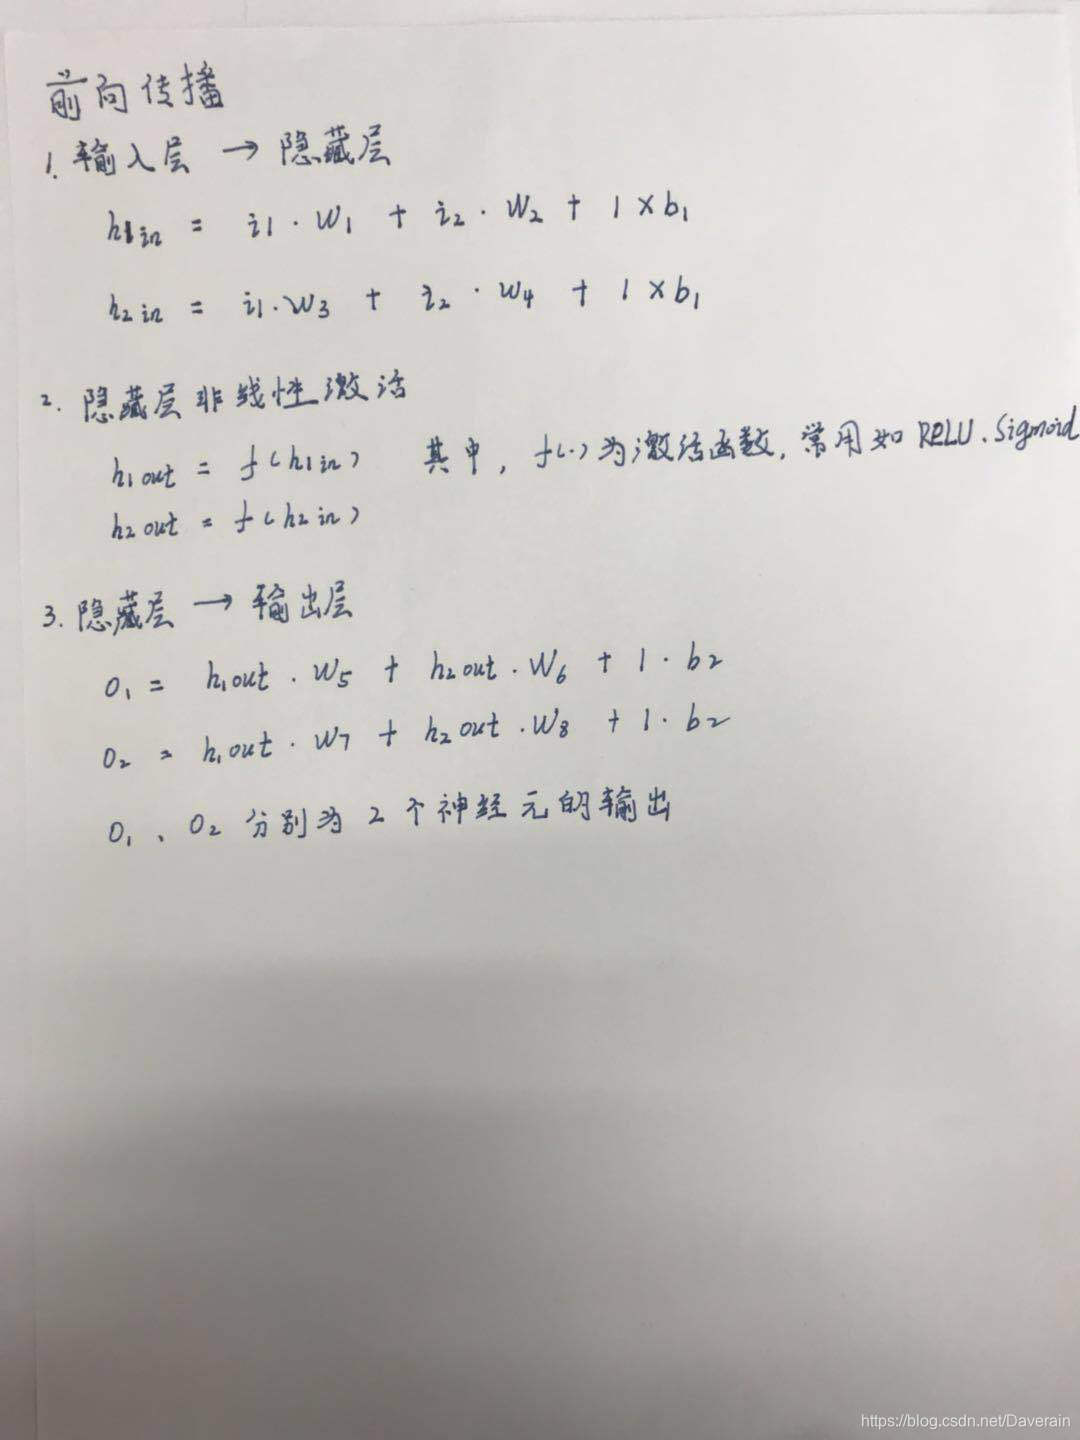 前向传播
1. 输入层 → 隐藏层
h1in = i1 · w1 + i2 · w2 + 1 × b1
h2in = i1 · w3 + i2 · w4 + 1 × b1
2. 隐藏层非线性激活
h1out = f(h1in) 其中, f(·)为激活函数, 常用如 RELU、Sigmoid
h2out = f(h2in)
3. 隐藏层 → 输出层
O1 = h1out · w5 + h2out · w6 + 1 · b2
O2 = h1out · w7 + h2out · w8 + 1 · b2
O1、O2 分别为 2 个神经元的输出
https://blog.csdn.net/Daverain